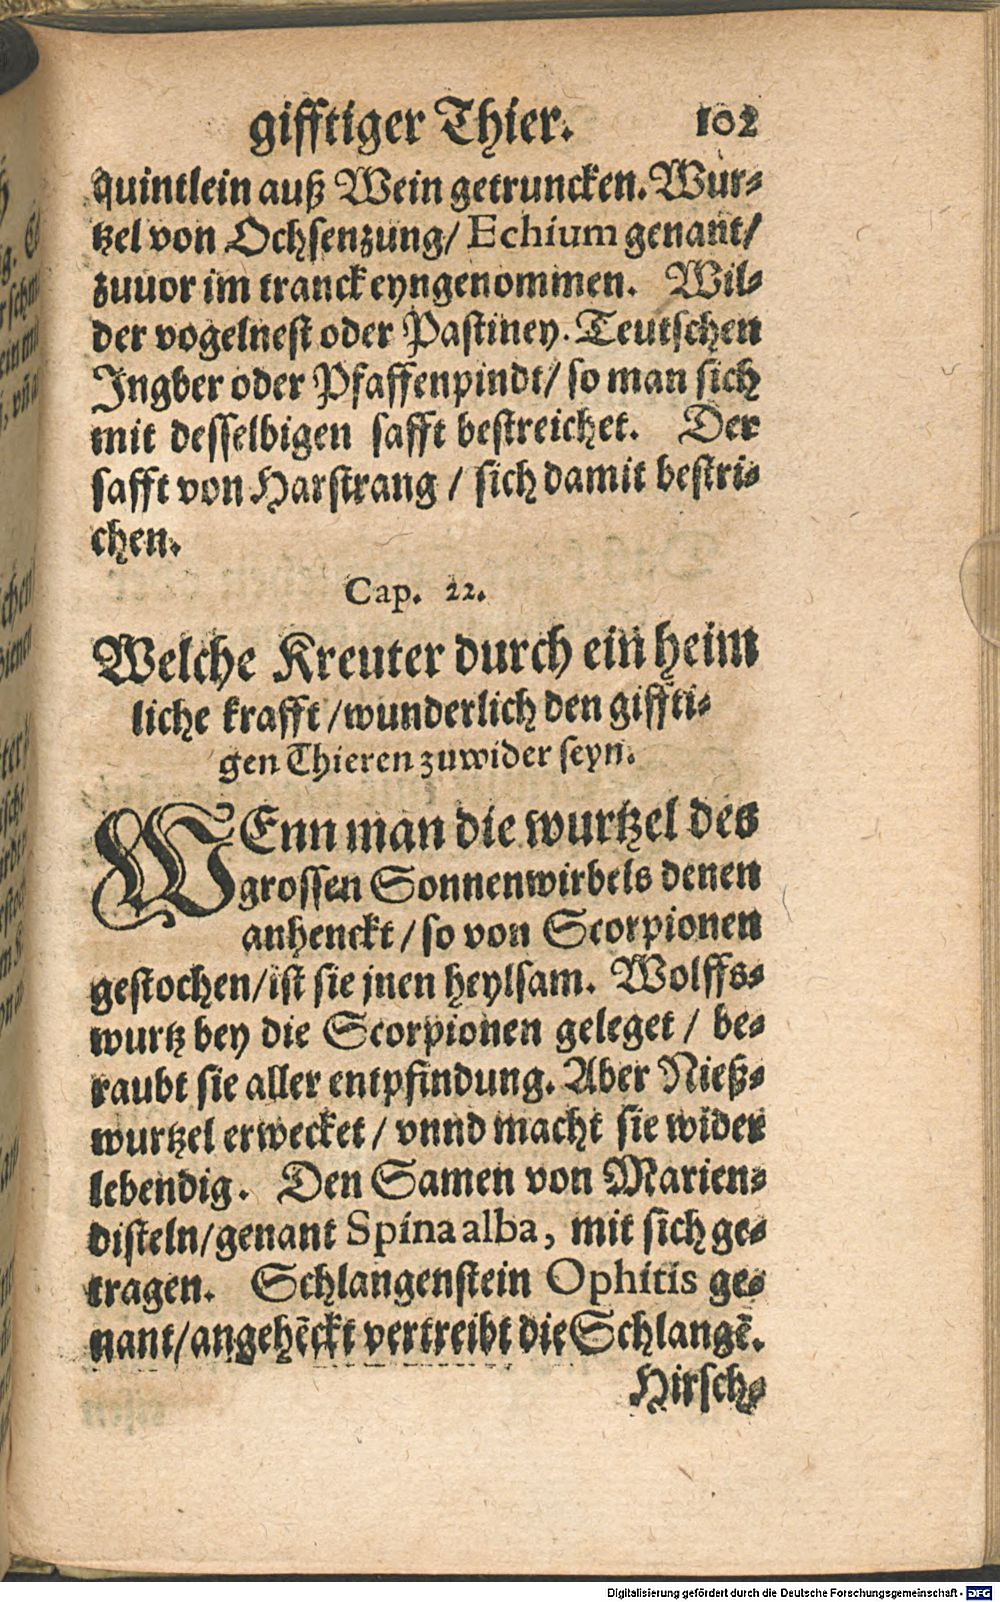 gifftiger Thier. 102
quintlein auß Wein getruncken. Wur⸗
tzel von Ochsenzung/ Echium genant/
zuuor im tranck eyngenommen. Wil⸗
der vogelnest oder Pastiney. Teutschen
Ingber oder Pfaffenpindt/ so man sich
mit desselbigen safft bestreichet. Der
safft von Harstrang / sich damit bestri⸗
chen.
Cap. 22.
Welche Kreuter durch ein heim
liche krafft /wunderlich den giffti⸗
gen Thieren zuwider seyn.
WEnn man die wurtzel des
grossen Sonnenwirbels denen
anhenckt / so von Scorpionen
gestochen/ist sie jnen heylsam. Wolffs⸗
wurtz bey die Scorpionen geleget / be⸗
raubt sie aller entpfindung. Aber Nieß⸗
wurtzel erwecket / vnnd macht sie wider
lebendig. Den Samen von Marien⸗
disteln/genant Spina alba, mit sich ge⸗
tragen. Schlangenstein Ophitis ge⸗
nant/angehēckt vertreibt die Schlangē.
Hirsch⸗
Digitalisierung gefördert durch die Deutsche Forschungsgemeinschaft - DFG